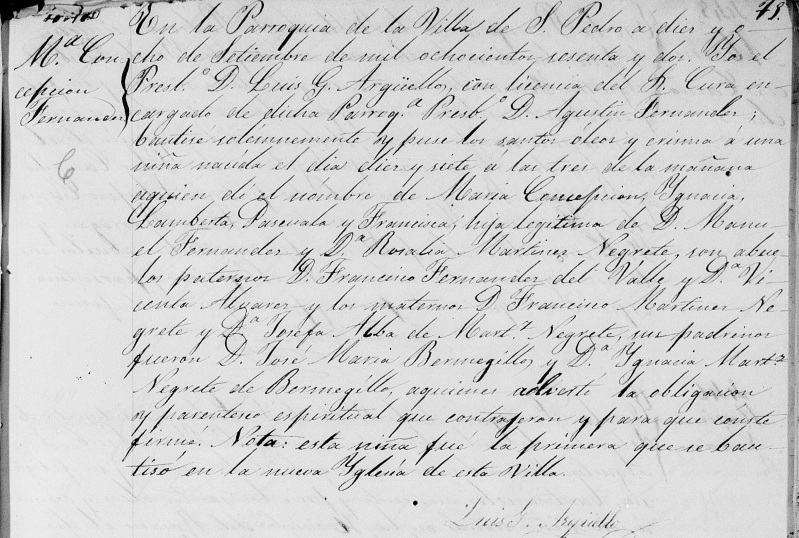 48.
Mª Con-
cepcion
Fernandez
En la Parroquia de la Villa de S. Pedro a diez y o-
cho de Setiembre de mil ochocientos sesenta y dos. Yo el
Presb.º D. Luis G. Argüello, con licencia del S. Cura en-
cargado de dicha Parroq.ª Presb.º D. Agustin Fernandez;
bautisé solemnemente y puse los santos óleos y crisma á una
niña nacida el dia diez y siete a las tres de la mañana
aquien di el nombre de Maria Concepcion, Ygnacia,
Lamberta, Pascuala y Francisca, hija legitima de D. Manu-
el Fernandez y D.ª Rosalia Martinez Negrete, son abue-
los paternos D. Francisco Fernandez del Valle y D.ª Vi-
centa Alvarez y los maternos D. Francisco Martinez Ne-
grete y D.ª Josefa Alba de Mart.z Negrete, sus padrinos
fueron D. Jose Maria Bermegillo y D.ª Ygnacia Mart.z
Negrete de Bermegillo, aquienes advertí la obligacion
y parentesco espiritual que contrajeron y para que conste
firmé. Nota: esta niña fue la primera que se bau-
tisó en la nueva Yglesia de esta Villa.
Luis G. Argüello